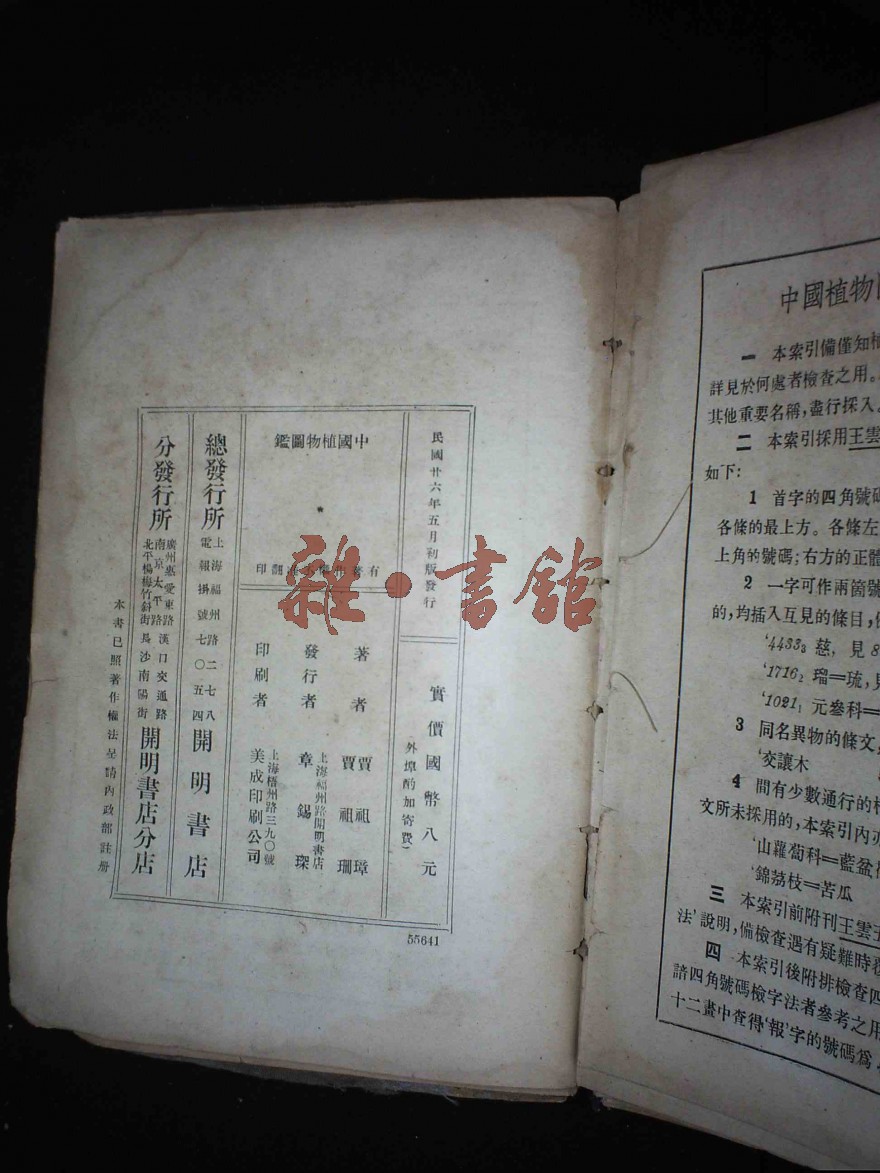 民國廿六年五月初版發行
實價國幣八元
外埠酌加寄費)
中國植物圖鑑
*
有著作權不准翻印
著者
賈祖璋
賈祖珊
發行者
上海福州路開明書店
章錫琛
印刷者
上海梧州路三九〇號
美成印刷公司
總發行所
上海福州路二七八
電報掛號七〇五四
開明書店
分發行所
廣州惠愛東路漢口交通路
南京太平路
北平楊梅竹斜街長沙南陽街
開明書店分店
本書已照著作權法呈請內政部註冊
55641
雜·書館
中國植物
一 本索引備僅知
詳見於何處者檢查之用。
其他重要名稱,盡行採入。
二 本索引採用王雲
如下:
1 首字的四角號碼
各條的最上方。各條左
上角的號碼;右方的正體
2 一字可作兩箇號
的,均插入互見的條目,
‘4433₃ 慈,見8
‘1716₂ 瑠=琉,見
‘1021₁ 元參科=
3 同名異物的條文,
‘交讓木
4 間有少數通行的
文所未採用的,本索引內亦
‘山蘿蔔科=藍盆
‘錦荔枝=苦瓜
三 本索引前附刊王雲五
法’說明,備檢查遇有疑難時覆
四 本索引後附排檢查四
諳四角號碼檢字法者參考之用
十二畫中查得‘報’字的號碼爲